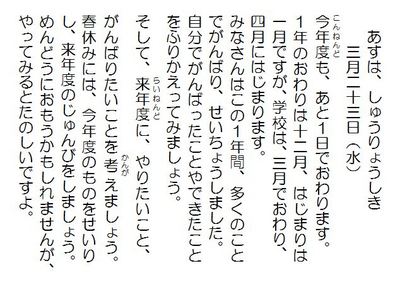 あすは、しゅうりょうしき
三月二十三日（水）
今年度も、あと１日でおわります。
１年のおわりは十二月、はじまりは
一月ですが、学校は、三月でおわり、
四月にはじまります。
みなさんはこの１年間、多くのこと
でがんばり、せいちょうしました。
自分でがんばったことやできたこと
をふりかえってみましょう。
そして、来年度に、やりたいこと、
がんばりたいことを考えましょう。
春休みには、今年度のものをせいり
し、来年度のじゅんびをしましょう。
めんどうにおもうかもしれませんが、
やってみるとたのしいですよ。
こんねんど
らいねんど
かんが